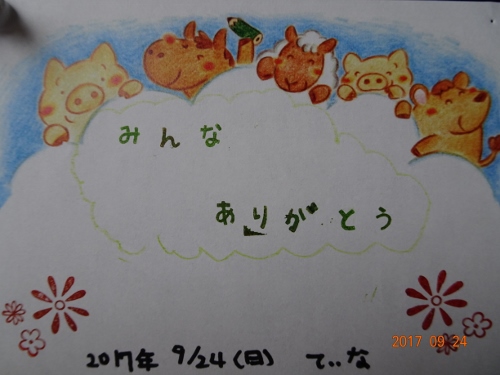 みんな
ありがとう
2017年 9/24(日) て..な
2017 09 24